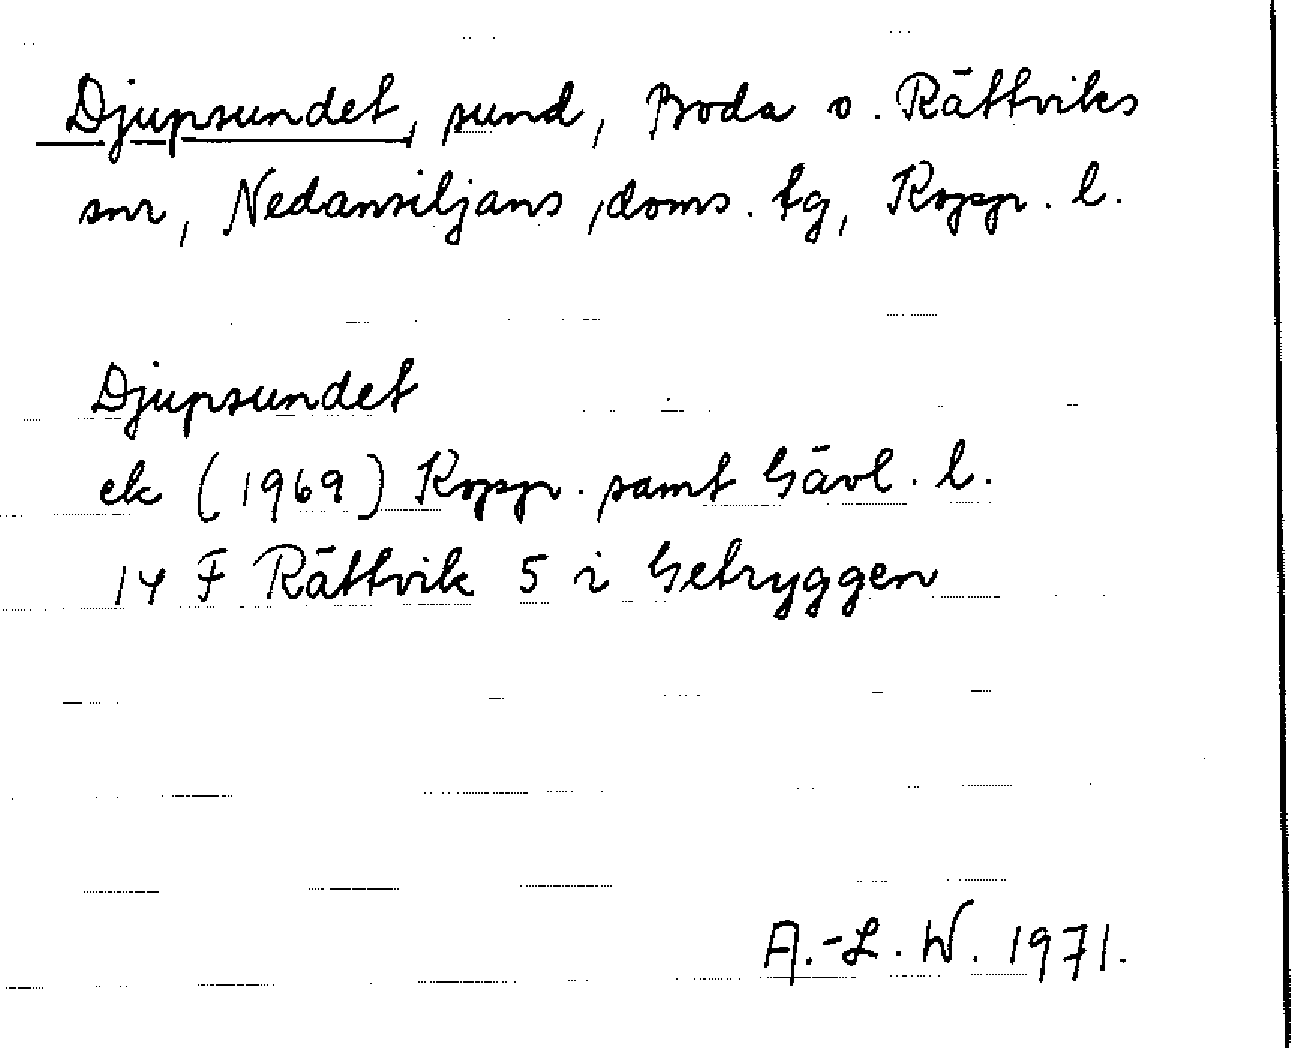 Djupsundet, sund, Boda o. Rättviks
snr, Nedansiljans doms. tg, Koppr. l.
Djupsundet
ek (1969) Koppr. samt Gävl. l.
14 F Rättvik 5 i Getryggen
A.-L. W. 1971.